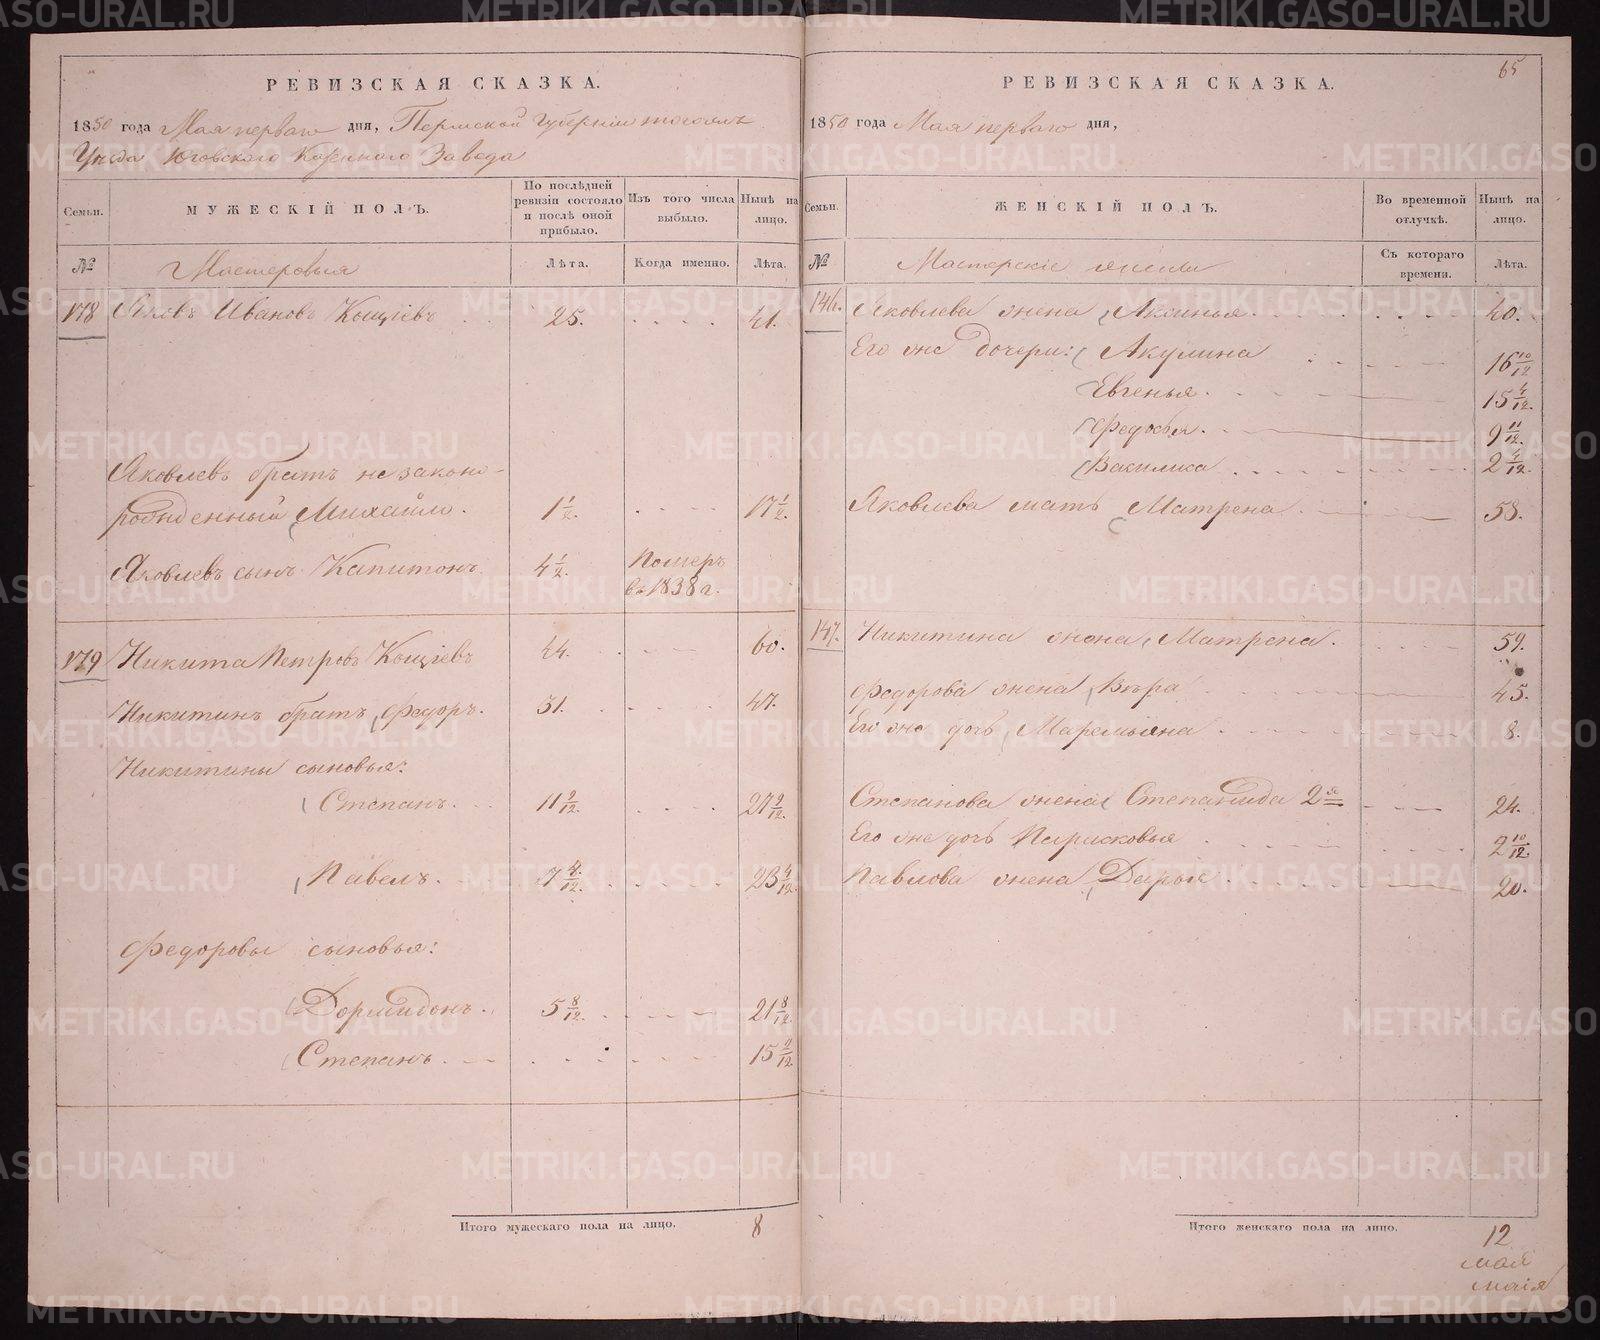 РЕВИЗСКАЯ СКАЗКА.
1850 года Мая перваго дня, Пермской Губернии тогожъ
Уезда Юговского Казенного Завода
Семьи.
МУЖЕСКІЙ ПОЛЪ.
По послѣдней ревизіи состояло и послѣ оной прибыло.
Изъ того числа выбыло.
Нынѣ на лицо.
№
Мастеровыя
Лѣта.
Когда именно.
Лѣта.
178 Яковъ Ивановъ Кощіевъ 25. 41.
Яковлевъ братъ не законо-
рожденный Михайло. 1 1/2. 17 1/2.
Яковлевъ сынъ Капитонъ. 4 1/2. Померъ
въ 1838 г.
179 Никита Петровъ Кощіевъ 44. 60.
Никитинъ братъ Федоръ. 31. 47.
Никитины сыновья:
Степанъ. 11 9/12. 27 9/12.
Павелъ. 7 4/12. 23 4/12.
Федоровы сыновья:
Дормидонъ. 5 8/12. 21 8/12.
Степанъ. 15 2/12.
Итого мужескаго пола на лицо. 8
65
РЕВИЗСКАЯ СКАЗКА.
1850 года Мая перваго дня,
Семьи.
ЖЕНСКІЙ ПОЛЪ.
Во временной отлучкѣ.
Нынѣ на лицо.
№
Мастерскіе жены
Съ котораго времени.
Лѣта.
146. Яковлева жена Аксинья. 40.
Его же дочери: Акулина 16 10/12
Евгенья. 15 4/12.
Федосья. 9 11/12.
Василиса 2 4/12.
Яковлева мать Матрена 58.
147. Никитина жена Матрена. 59.
Федорова жена Вѣра 45.
Его же дочь Маремьяна 8.
Степанова жена Степанида 2я 24.
Его же дочь Парасковья 2 10/12.
Павлова жена Дарья 20.
Итого женскаго пола на лицо. 12
METRIKI.GASO-URAL.RU